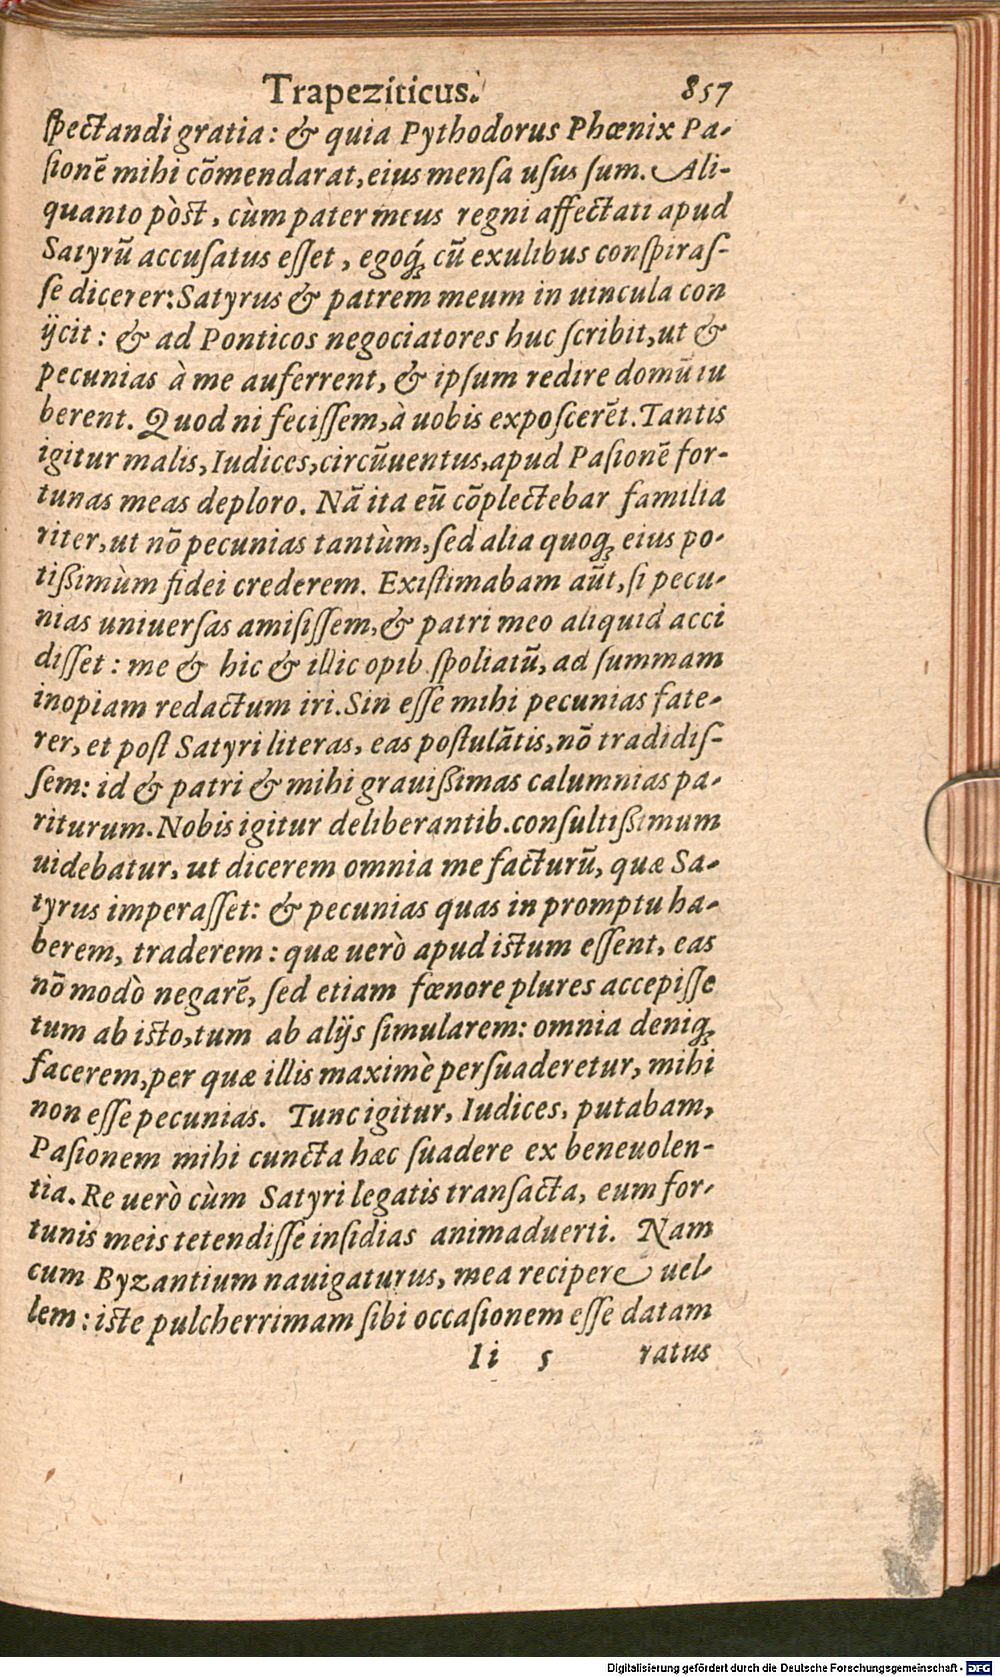 Trapeziticus. 857
ſpectandi gratia: & quia Pythodorus Phœnix Pa-
ſionē mihi cōmendarat, eius menſa uſus ſum. Ali-
quanto pòst, cùm pater meus regni affectati apud
Satyrū accuſatus eſſet, egoq́ꝫ cū exulibus conſpiraſ-
ſe dicerer: Satyrus & patrem meum in uincula con
ijcit: & ad Ponticos negociatores huc ſcribit, ut &
pecunias à me auferrent, & ipſum redire domū iu
berent. Quod ni feciſſem, à uobis expoſcerēt. Tantis
igitur malis, Iudices, circūuentus, apud Paſionē for-
tunas meas deploro. Nā ita eū cōplectebar familia
riter, ut nō pecunias tantùm, ſed alia quoqꝫ eius po-
tißimùm fidei crederem. Existimabam aūt, ſi pecu-
nias uniuerſas amiſiſſem, & patri meo aliquid acci
diſſet: me & hic & illic opib. ſpoliatū, ad ſummam
inopiam redactum iri. Sin eſſe mihi pecunias fate-
rer, et poſt Satyri literas, eas poſtulātis, nō tradidiſ-
ſem: id & patri & mihi grauißimas calumnias pa-
riturum. Nobis igitur deliberantib. conſultißimum
uidebatur, ut dicerem omnia me facturū, quæ Sa-
tyrus imperaſſet: & pecunias quas in promptu ha-
berem, traderem: quæ uerò apud istum eſſent, eas
nō modò negarē, ſed etiam fœnore plures accepiſſe
tum ab isto, tum ab alijs ſimularem: omnia deniqꝫ
facerem, per quæ illis maximè perſuaderetur, mihi
non eſſe pecunias. Tunc igitur, Iudices, putabam,
Paſionem mihi cuncta hæc ſuadere ex beneuolen-
tia. Re uerò cùm Satyri legatis tranſacta, eum for-
tunis meis tetendiſſe inſidias animaduerti. Nam
cum Byzantium nauigaturus, mea recipere uel-
lem: iste pulcherrimam ſibi occaſionem eſſe datam
Ii 5 ratus
Digitalisierung gefördert durch die Deutsche Forschungsgemeinschaft - DFG